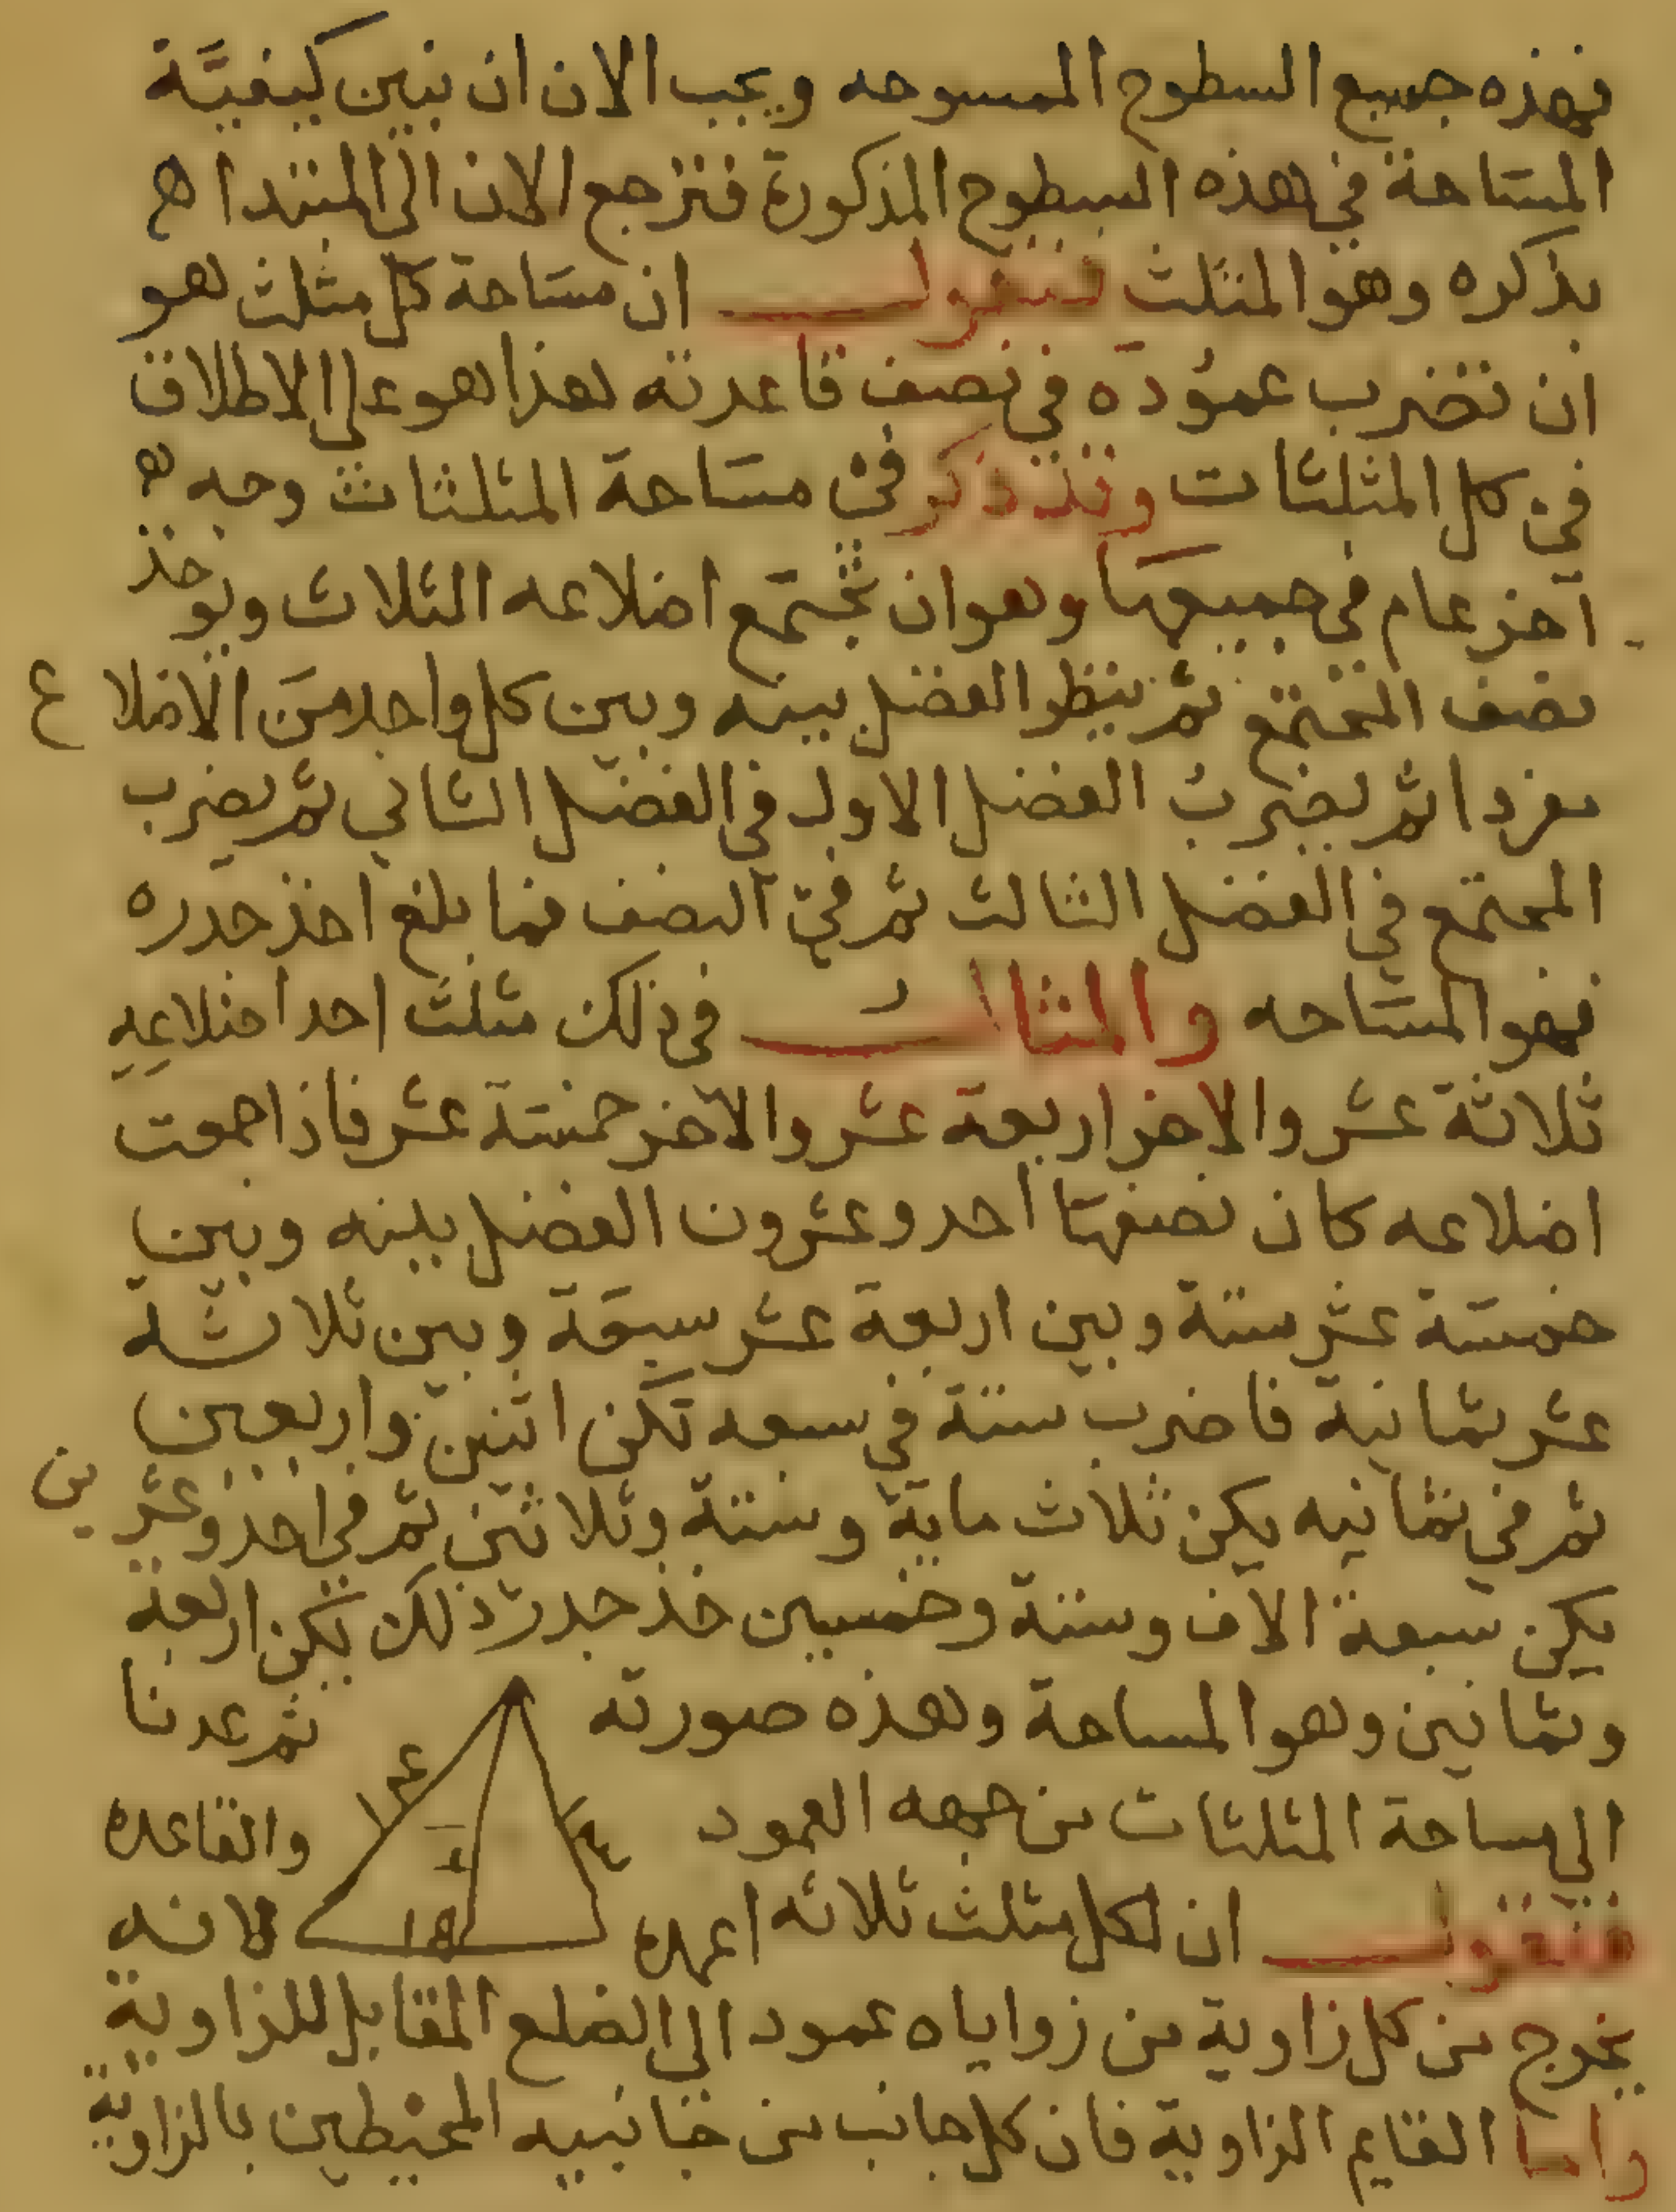 فهذه جميع السطوح الممسوحه ويجب الان ان نبين كيفيَّة
المسَاحة في هذه السطوح المذكورة فنرجع الان الى المبتدا
بذكره وهو المثلث فنقول ان مسَاحة كل مثلث هو
ان تضرب عموُدَه في نصف قاعدته هذا هو على الاطلاق
في كل المثلثات وقد ذكر في مسَاحة المثلثات وجه
آخر عام في جميعهَا وهو ان تجتمع اضلاعه الثلاث ويوخذ
نصف المجتمع ثم ينظر الفضل بينه وبين كل واحد منَ الاضلاع
مفردا ثم يضربُ الفضل الاول في الفضل الثاني ثم يضرب
المجتمع في الفضل الثالث ثم في النصف فما بلغ اخذ جدره
فهو المسَاحه والمثال في ذلك مثلث احد اضلاعِهِ
ثلاثة عشر والاخر اربعة عشر والآخر خمسَة عشر فاذا جمعت
اضلاعه كان نصفهَا احد وعشرون الفضل بينه وبين
خمسَة عشر ستة وبين اربعة عشر سبعَة وبين ثلاثة
عشر ثمانية فاضرب ستة في سبعه تكن اثنين واربعين
ثم في ثمانيه يكن ثلاث ماية وستة وثلاثين ثم في احد وعشرين
يكن سبعة الاف وستة وخمسين خذ جدر ذلك يكن اربعة
وثمانين وهو المساحة وهذه صورته ثم عدنا
الى مساحة المثلثات من جهه العمود والقاعده
فنقول ان لكل مثلث ثلاثه اعمده لانه
يخرج من كل زاوية من زواياه عمود الى الضلع المقابل للزاوية
واما القايم الزاوية فان كل جانب من جانبيه المحيطين بالزاوية